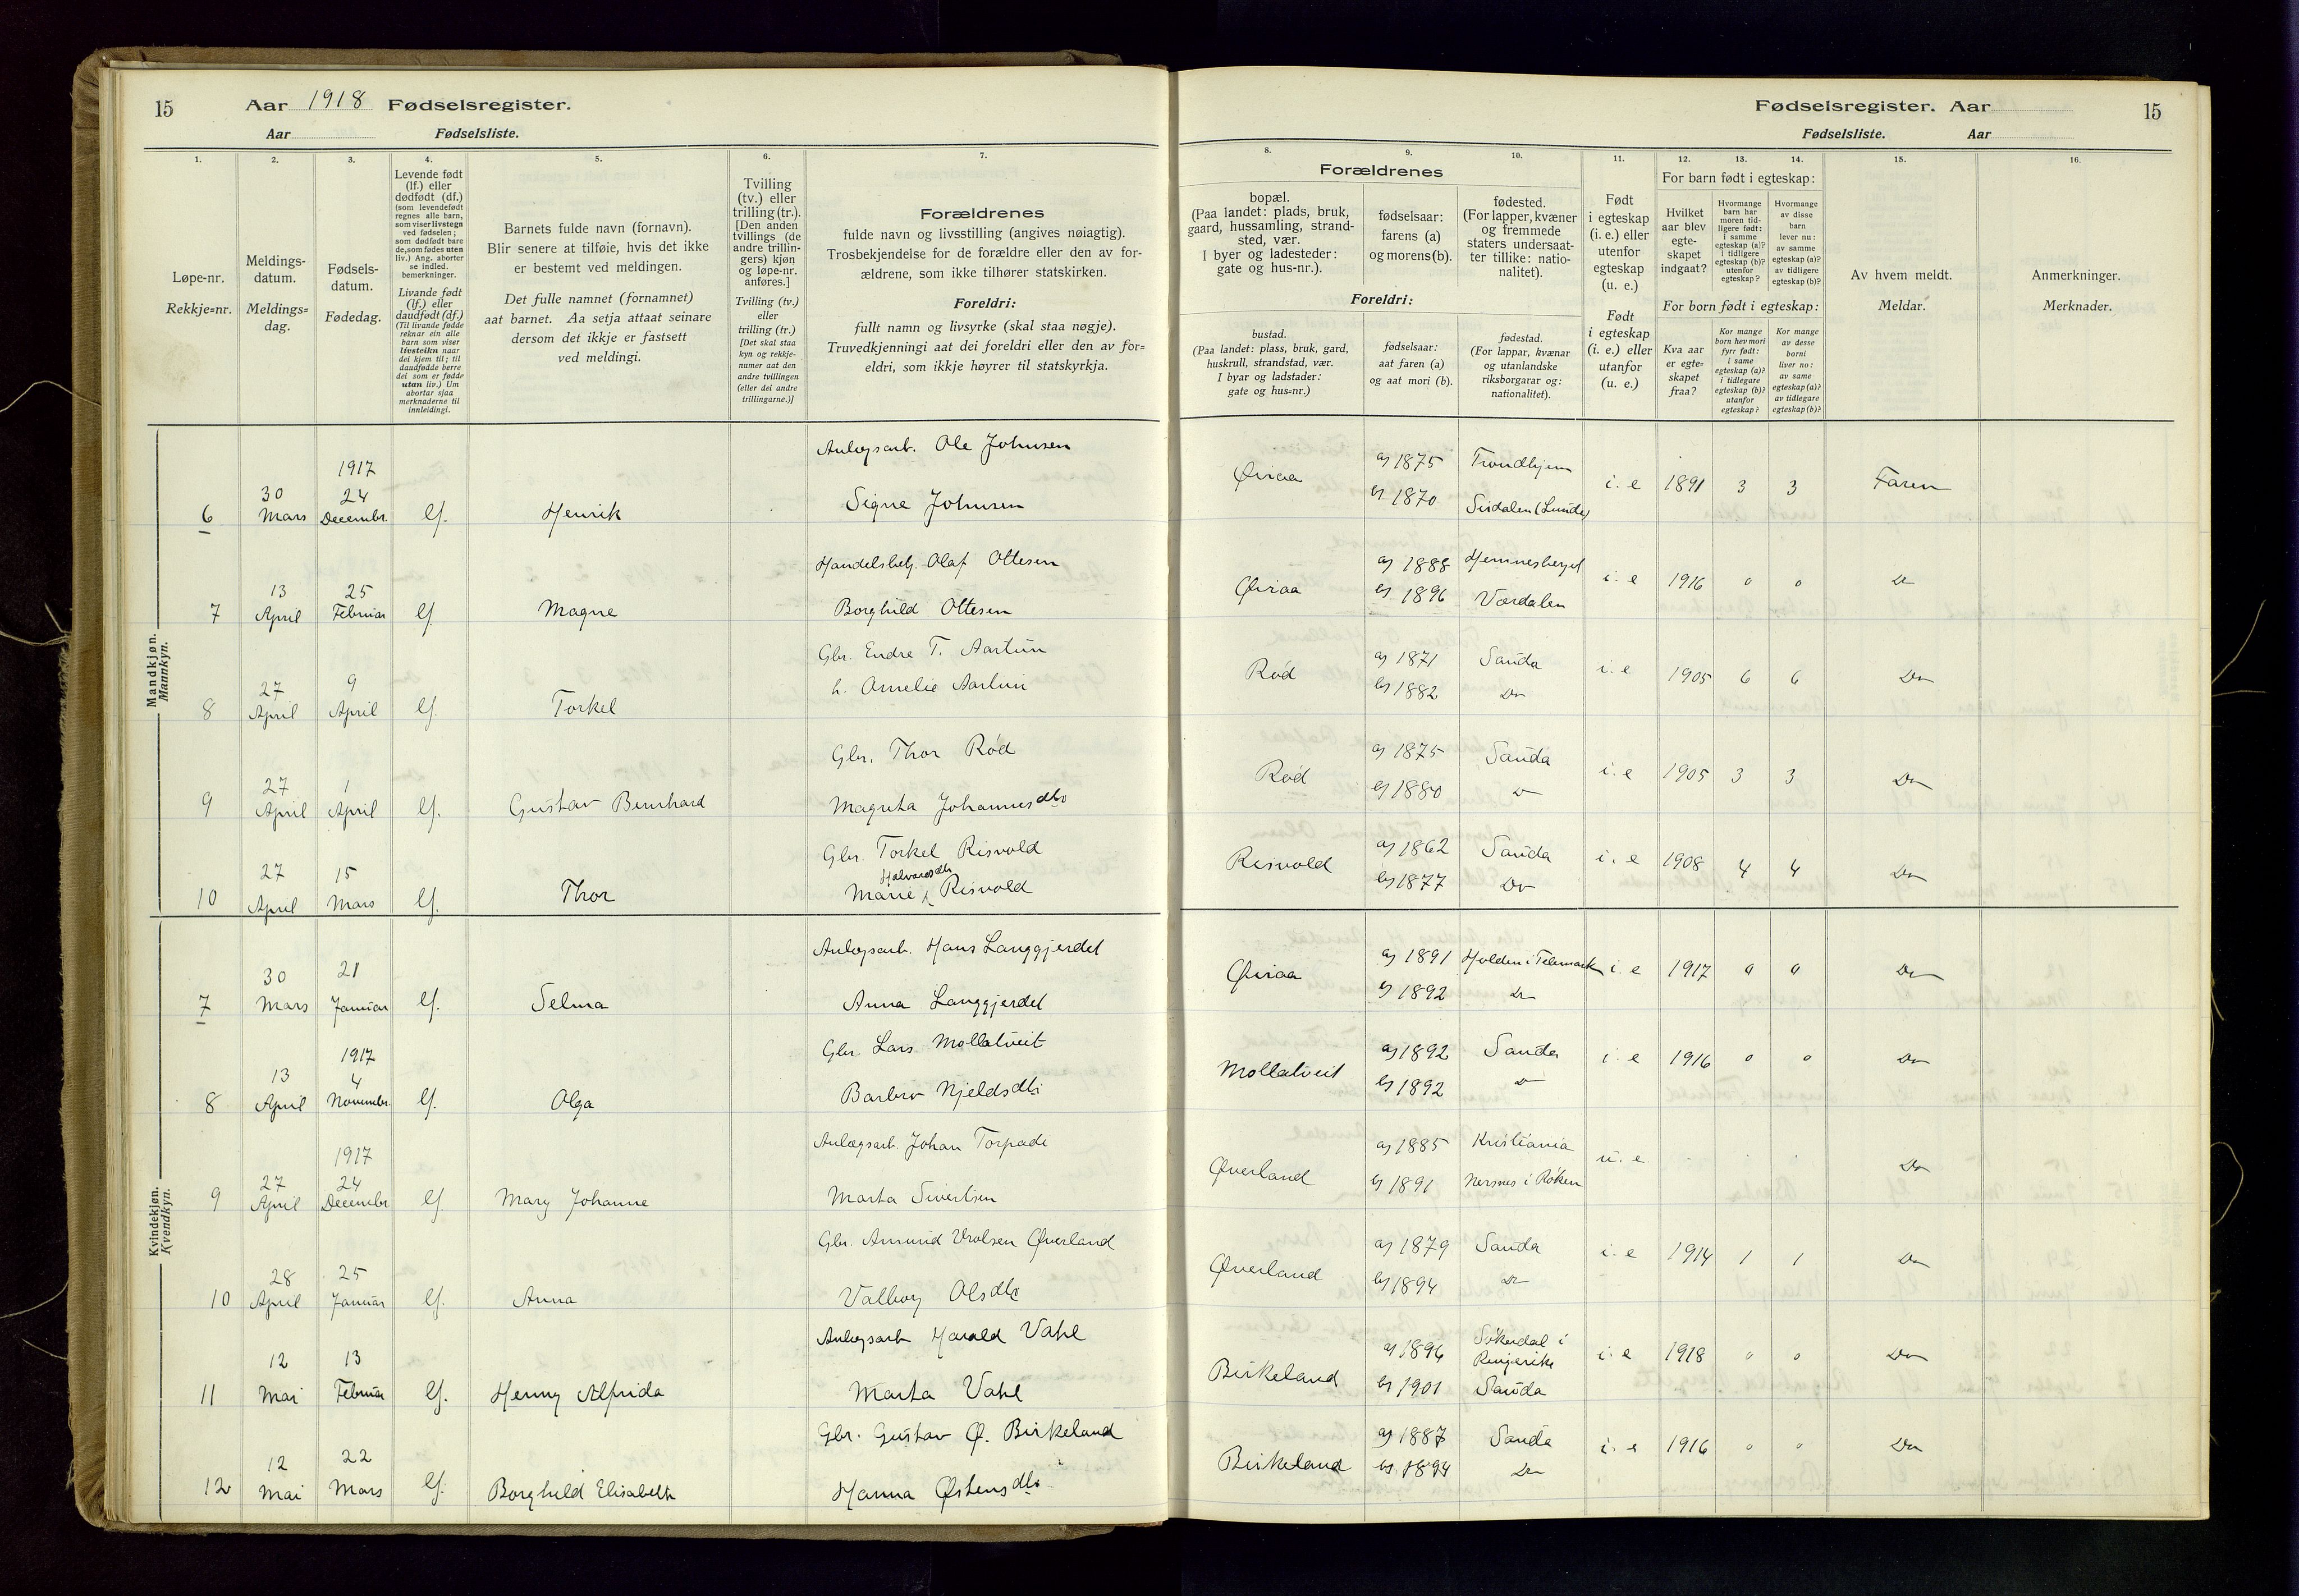 15
Aar 1918 Fødselsregister.
Aar Fødselsliste.
1.
Løpe-nr.
Rekkje=nr.
2.
Meldings-
datum.
Meldings=
dag.
3.
Fødsels-
datum.
Fødedag.
4.
Levende født
(lf.) eller
dødfødt (df.)
(som levendefødt
regnes alle barn,
som viser livstegn
ved fødselen;
som dødfødt bare
de, som fødes uten
liv.) Ang. aborter
se indled.
bemerkninger.
Livande født
(lf.) eller
daudfødt (df.)
(Til livande fødde
reknar ein alle
barn som viser
livsteikn naar
dei kjem til; til
daudfødde berre
dei som er fødde
utan liv.) Um
abortar sjaa
merknaderne til
innleidingi.
5.
Barnets fulde navn (fornavn).
Blir senere at tilføie, hvis det ikke
er bestemt ved meldingen.
Det fulle namnet (fornamnet)
aat barnet. Aa setja attaat seinare
dersom det ikkje er fastsett
ved meldingi.
6.
Tvilling
(tv.) eller
trilling (tr.).
[Den anden
tvillings (de
andre trillin-
gers) kjøn
og løpe-nr.
anføres.]
Tvilling (tv.)
eller
trilling (tr.)
[Det skal staa
kyn og rekkje-
numer aat den
andre tvillingen
(eller dei andre
trillingarne.)]
7.
Forældrenes
fulde navn og livsstilling (angives nøiagtig).
Trosbekjendelse for de forældre eller den av for-
ældrene, som ikke tilhører statskirken.
Foreldri:
fullt namn og livsyrke (skal staa nøgje).
Truvedkjenningi aat dei foreldri eller den av for=
eldri, som ikkje høyrer til statskyrkja.
Fødselsregister. Aar 15
Fødselsliste. Aar
8.
Forældrenes
bopæl.
(Paa landet: plads, bruk,
gaard, hussamling, strand-
sted, vær.
I byer og ladesteder:
gate og hus-nr.).
Foreldri:
bustad.
(Paa landet: plass, bruk, gard,
huskrull, strandstad, vær.
I byar og ladstader:
gate og hus=nr.)
9.
fødselsaar:
farens (a)
og morens (b).
fødselsaar:
aat faren (a)
og aat mori (b).
10.
fødested.
(For lapper, kvæner
og fremmede
staters undersaat-
ter tillike: natio-
nalitet).
fødestad.
(For lappar, kvænar
og utanlandske
riksborgarar og:
nationalitet).
11.
Født
i egteskap
(i. e.) eller
utenfor
egteskap
(u. e.)
Født
i egteskap
(i. e.) eller
utanfor
(u. e.)
12.
For barn født i egteskap:
Hvilket
aar blev
egte-
skapet
indgaat?
For born født i egteskap:
Kva aar
er egte=
skapet
fraa?
13.
Hvormange
barn har
moren tid-
ligere født:
i samme
egteskap (a)?
i tidligere
egteskap (b)?
utenfor
egteskap?
Kor mange
born hev mori
fyrr født:
i same
egteskap (a)?
i tidlegare
egteskap (b)?
utanfor
egteskap?
14.
Hvormange
av disse
barn
lever nu:
av samme
egteskap (a)?
av tidligere
egteskap (b)?
Kor mange
av desse
borni
liver no:
av same
egteskap (a)?
av tidlegare
egteskap (b)?
15.
Av hvem meldt.
Meldar.
16.
Anmerkninger.
Merknader.
Mandkjøn.
Mannkyn.
6 30 Mars 1917 24 Decembr. lf. Henrik Anlægsarb. Ole Johnsen
Signe Johnsen
Øiraa a) 1875 Trondhjem i. e 1891 3 3 Faren
b) 1870 Sirdalen (Lunde)
7 13 April 25 Februar lf. Magne Handelsbetj. Olaf Ottesen
Borghild Ottesen
Øiraa a) 1888 Hemnesberget i. e 1916 0 0 Do
b) 1896 Værdalen
8 27 April 9 April lf. Torkel Gbr. Endre T. Aartun
h. Amelie Aartun
Rød a) 1871 Sauda i. e 1905 6 6 Do
b) 1882 Do
9 27 April 1 April lf. Gustav Bernhard Gbr. Thor Rød
Magreta Johannesdtr
Rød a) 1875 Sauda i. e 1905 3 3 Do
b) 1880 Do
10 27 April 15 Mars lf. Thor Gbr. Torkel Risvold
Marie Halvorsdtr Risvold
Risvold a) 1862 Sauda i. e 1908 4 4 Do
b) 1877 Do
Kvindekjøn.
Kvendkyn.
7 30 Mars 21 Januar lf. Selma Anlægsarb. Hans Langgjerdet
Anna Langgjerdet
Øiraa a) 1891 Holden i Telemark i. e 1917 0 0 Do
b) 1892 Do
8 13 April 1917 4 Novembr. lf. Olga Gbr. Lars Mollatveit
Barbro Njeldsdtr
Mollatveit a) 1892 Sauda i. e 1916 0 0 Do
b) 1892 Do
9 27 April 1917 24 Decembr lf. Mary Johanne Anlægsarb. Johan Torpadi
Marta Sivertsen
Øverland a) 1885 Kristiania u. e. Do
b) 1891 Nersnes i Røken
10 28 April 25 Januar lf. Anna Gbr. Amund Vrolsen Øverland
Valborg Olsdtr
Øverland a) 1879 Sauda i. e 1914 1 1 Do
b) 1894 Do
11 12 Mai 13 Februar lf. Henny Alfrida Anlægsarb Harald Vahl
Marta Vahl
Birkeland a) 1896 Sørkedal i Ringerike i. e 1918 0 0 Do
b) 1901 Sauda
12 12 Mai 22 Mars lf. Borghild Elisabeth Gbr. Gustav Ø. Birkeland
Hanna Østensdtr
Birkeland a) 1887 Sauda i. e 1916 0 0 Do
b) 1894 Do